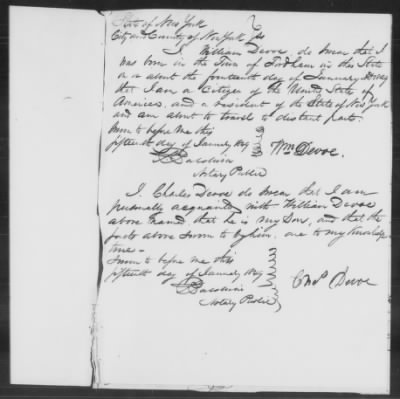 State of New York
City and County of New York
I William Devoe, do swear that I
was born in the Town of Fordham in this State
on or about the fourteenth day of January
that I am a Citizen of the United States of
America, and a resident of the State of New York
and am about to travel to distant parts.
Sworn to before me this
fifteenth day of January
Wm Devoe.
Notary Public
I, Charles Devoe do swear that I am
personally acquainted with William Devoe
above named that he is my Son, and that the
facts above sworn to by him, are to my knowledge
true -
Sworn to before me this
fifteenth day of January
Chas Devoe
Notary Public